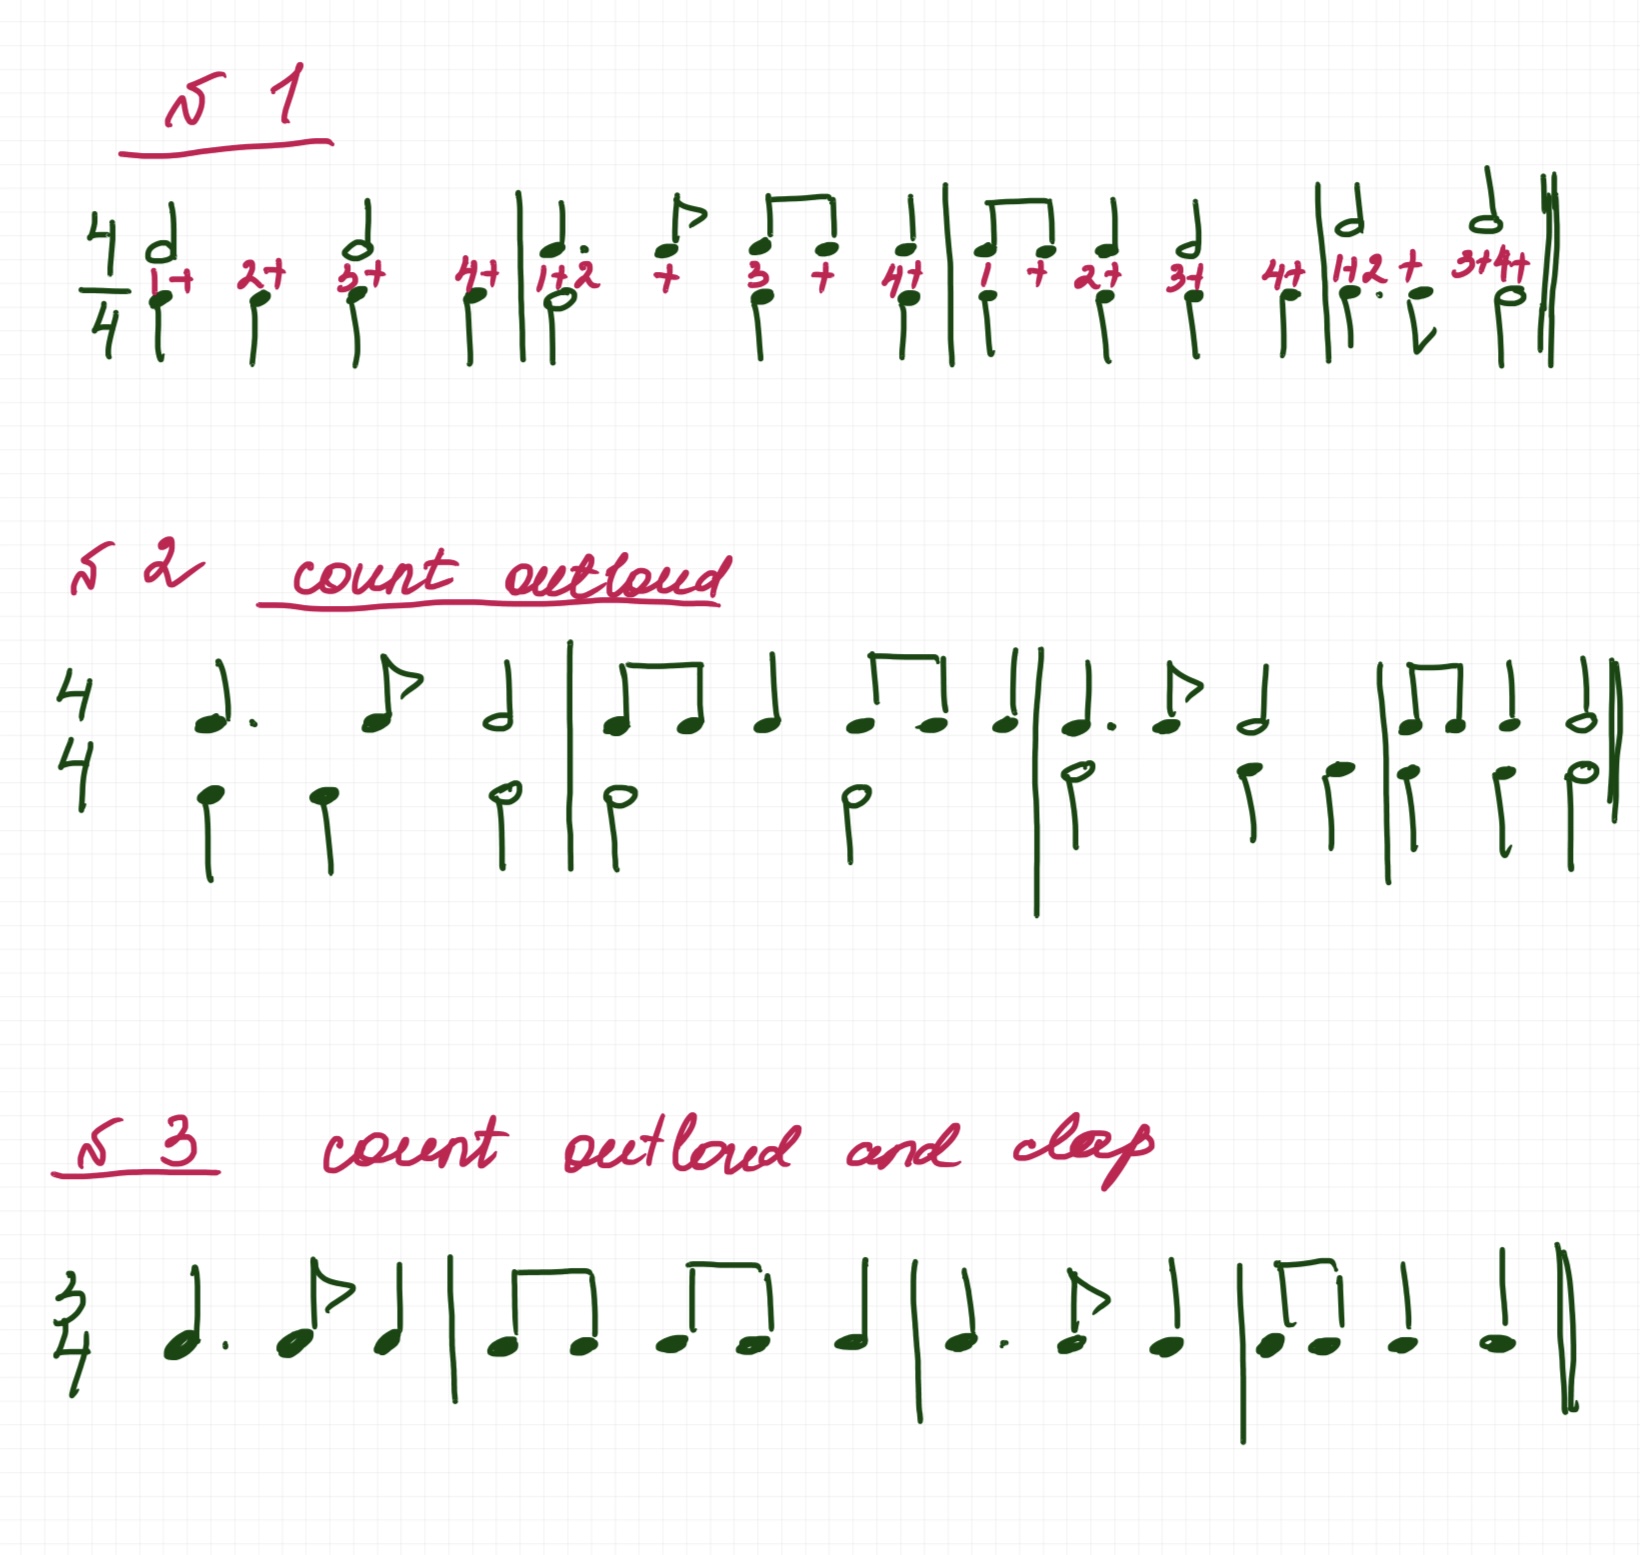 № 1
4
1+ 2+ 3+ 4+ 1+2 + 3 + 4+ 1 + 2+ 3+ 4+ 1+2 + 3+4+
4
№ 2 count outloud
4
4
№ 3 count outloud and clap
3
4